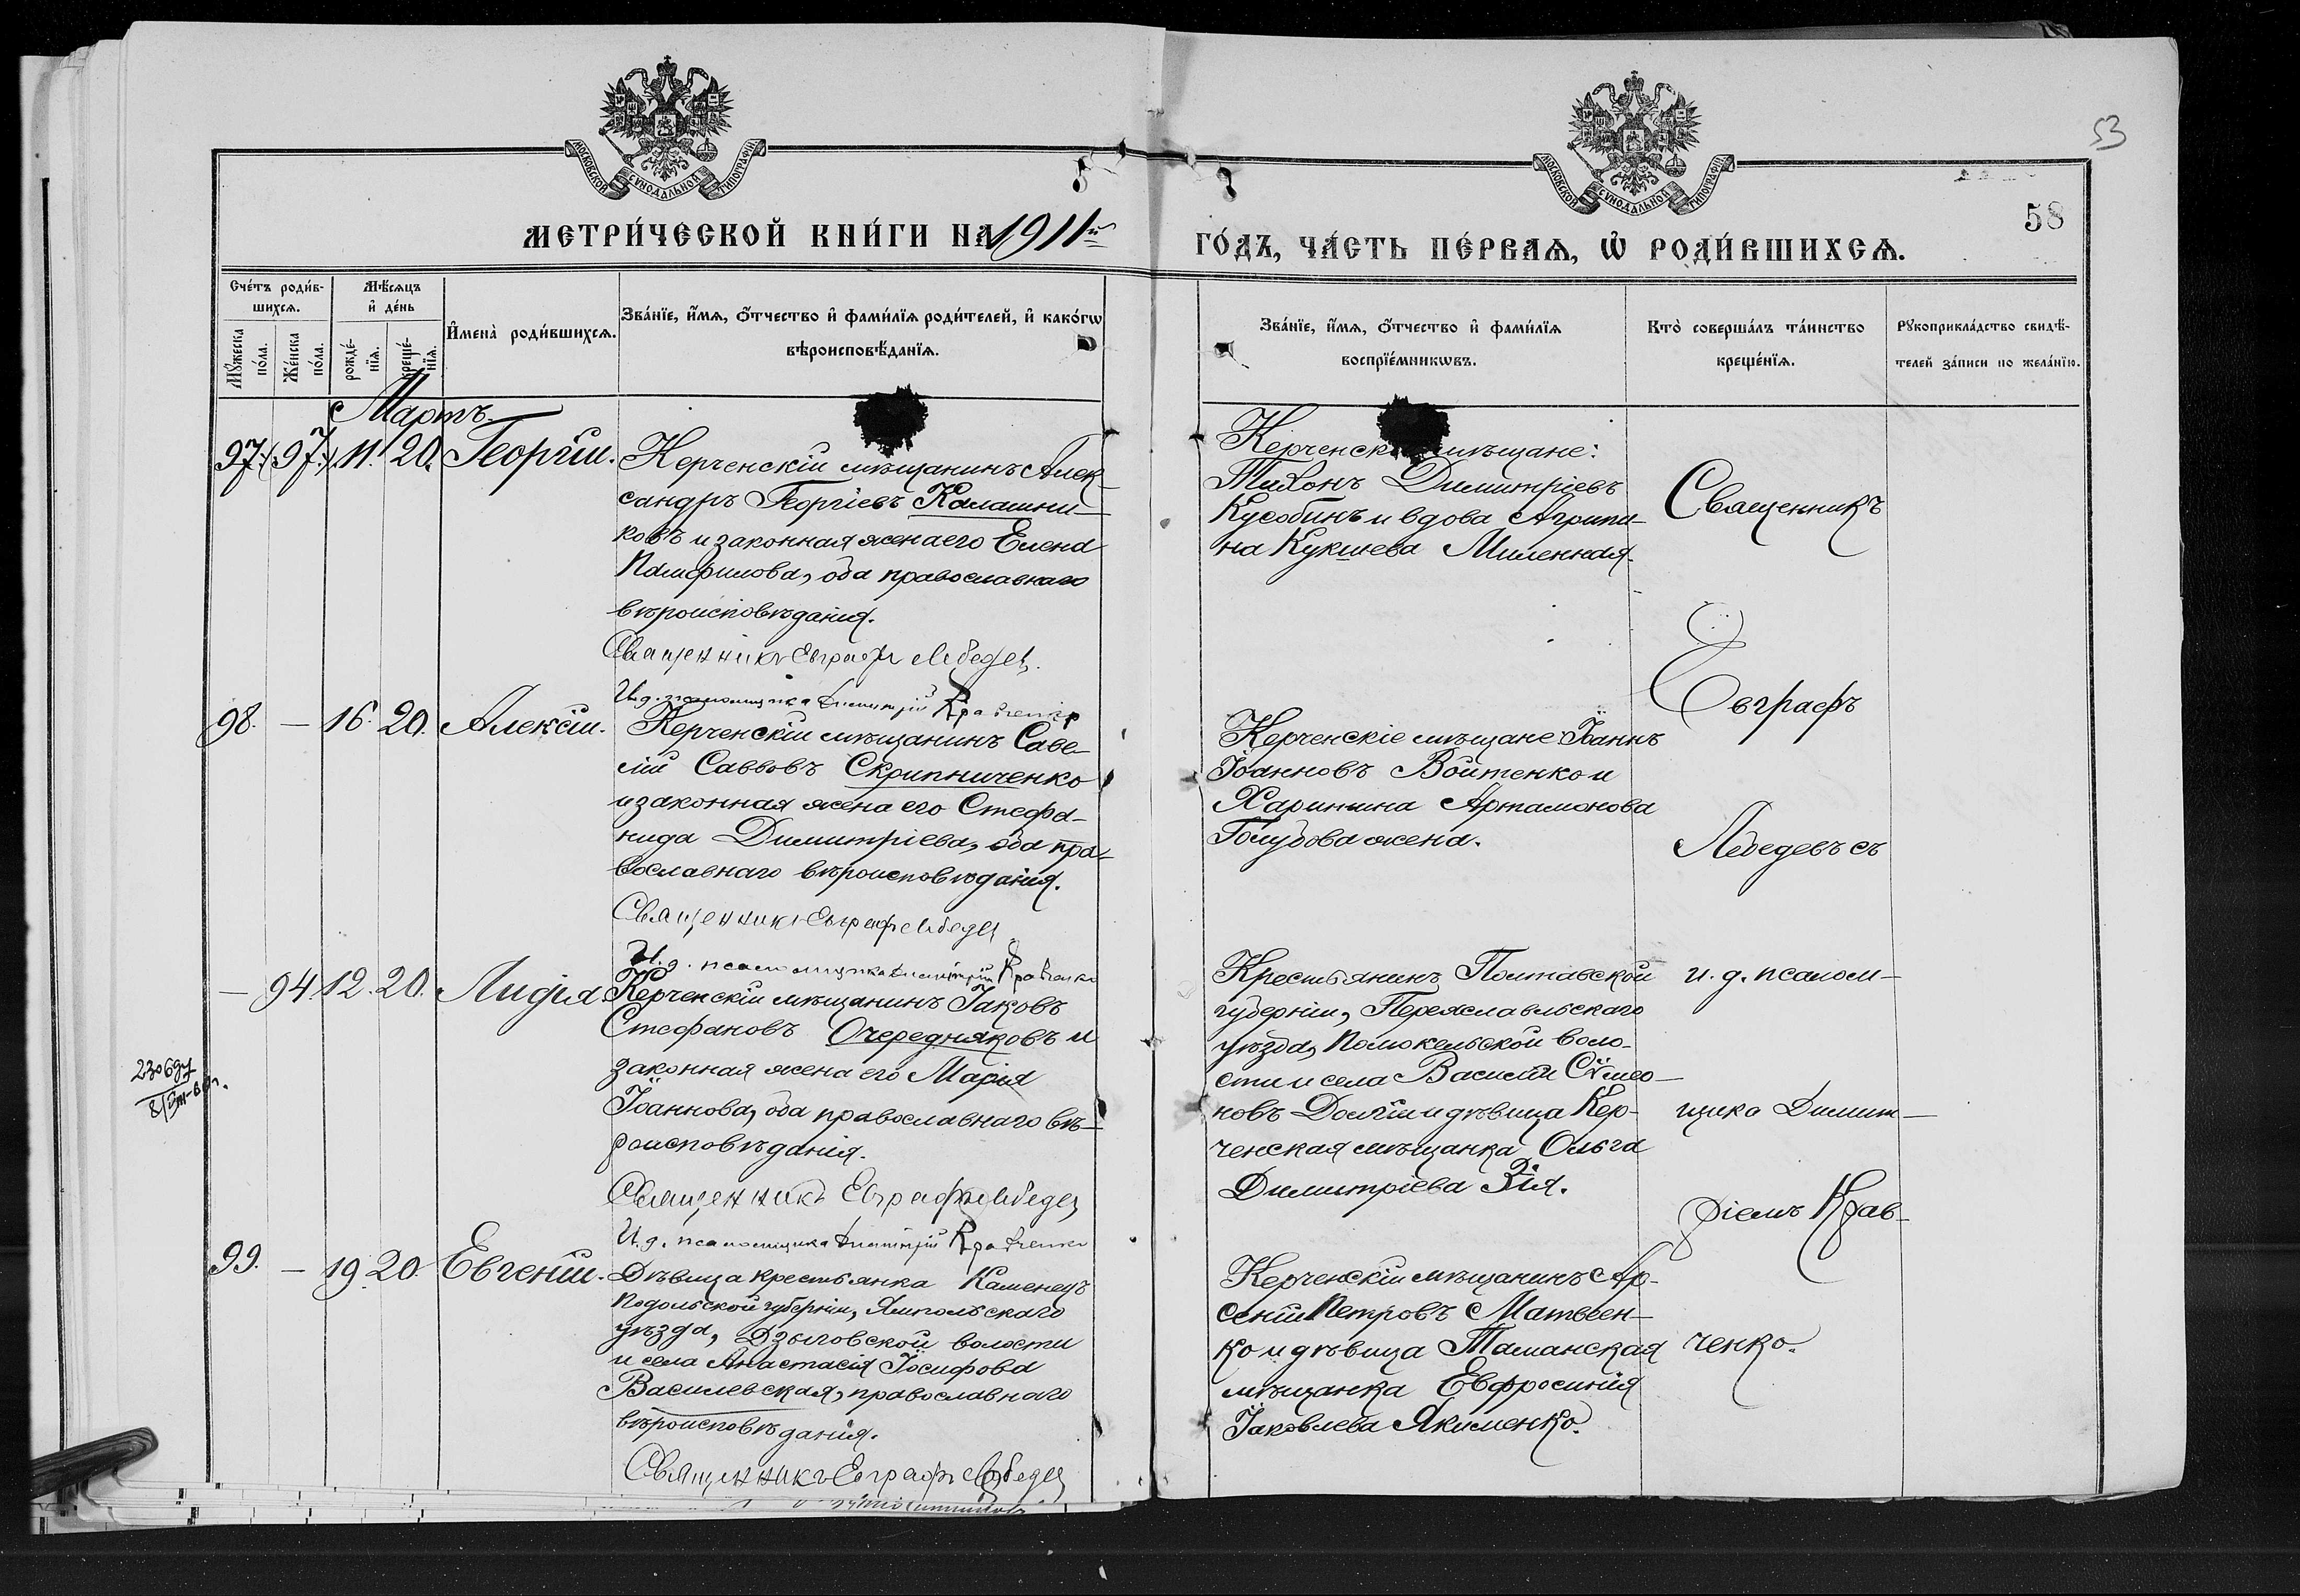 53
МОСКОВСКОЙ СѴНОДАЛЬНОЙ ТИПОГРАФІИ
МОСКОВСКОЙ СѴНОДАЛЬНОЙ ТИПОГРАФІИ
58
МЕТРИ́ЧЕСКОЙ КНИ́ГИ НА 1911й
ГО́ДЪ, ЧА́СТЬ ПЕ́РВАѦ, Ѡ҆ РОДИ́ВШИХСѦ.
Сче́тъ роди́в-
шихсѧ.
Мꙋ́жеска
по́ла.
Же́нска
по́ла.
Мѣ́сѧцъ
и҆ де́нь
рожде́-
нїѧ.
креще́-
нїѧ.
И҆мена̀ роди́вшихсѧ.
Зва́нїе, и҆́мѧ, ѻ҆́тчество и҆ фами́лїѧ роди́телей, и҆ како́гѡ
вѣроисповѣ́данїѧ.
Зва́нїе, и҆́мѧ, ѻ҆́тчество и҆ фами́лїѧ
воспрїе́мникѡвъ.
Кто̀ соверша́лъ та́инство
креще́нїѧ.
Рꙋкоприкла́дство свидѣ́-
телей за́писи по жела́нїю.
Мартъ.
97. (97.) 11. 20. Георгій.
Керченскій мѣщанинъ Алек-
сандръ Георгіевъ Калашни-
ковъ и законная жена его Елена
Памфилова, оба православнаго
вѣроисповѣданія.
Священникъ Евграфъ Лебедев
И.д. псаломщика Димитрій Кравченко
Керченскіе мѣщане:
Тихонъ Димитріевъ
и вдова Агрипи-
на Миленная.
Священникъ
98. — 16. 20. Алексій.
Керченскій мѣщанинъ Саве-
лій Саввовъ Скрипниченко
и законная жена его Стефа-
нида Димитріева, оба пра-
вославнаго вѣроисповѣданія.
Священникъ Евграфъ Лебедев
И.д. псаломщика Димитрій Кравченко
Керченскіе мѣщане Іоаннъ
Іоанновъ Войтенко и
Харитина Артамонова
Голубова жена.
Евграфъ
Лебедевъ съ
— 94. 12. 20. Лидія.
Керченскій мѣщанинъ Іаковъ
Стефановъ Очередняковъ и
законная жена его Марія
Іоаннова, оба православнаго вѣ-
роисповѣданія.
Священникъ Евграфъ Лебедев
И.д. псаломщика Димитрій Кравченко
Крестьянинъ Полтавской
губерніи, Переяславльскаго
уѣзда, воло-
сти и села Василій Сѵмео-
новъ Долгій и дѣвица Кер-
ченская мѣщанка Ольга
Димитріева Зія.
и. д. псалом-
щика Димит-
ріемъ Крав-
ченко.
99. — 19. 20. Евгеній.
Дѣвица крестьянка Каменецъ
Подольской губерніи, Ямпольскаго
уѣзда, Дзыговской волости
и села Анастасія Іосифова
Василевская, православнаго
вѣроисповѣданія.
Священникъ Евграфъ Лебедев
Керченскій мѣщанинъ Ар-
сеній Петровъ Матвеен-
ко и дѣвица Таманская
мѣщанка Евфросинія
Іаковлева Якименко.